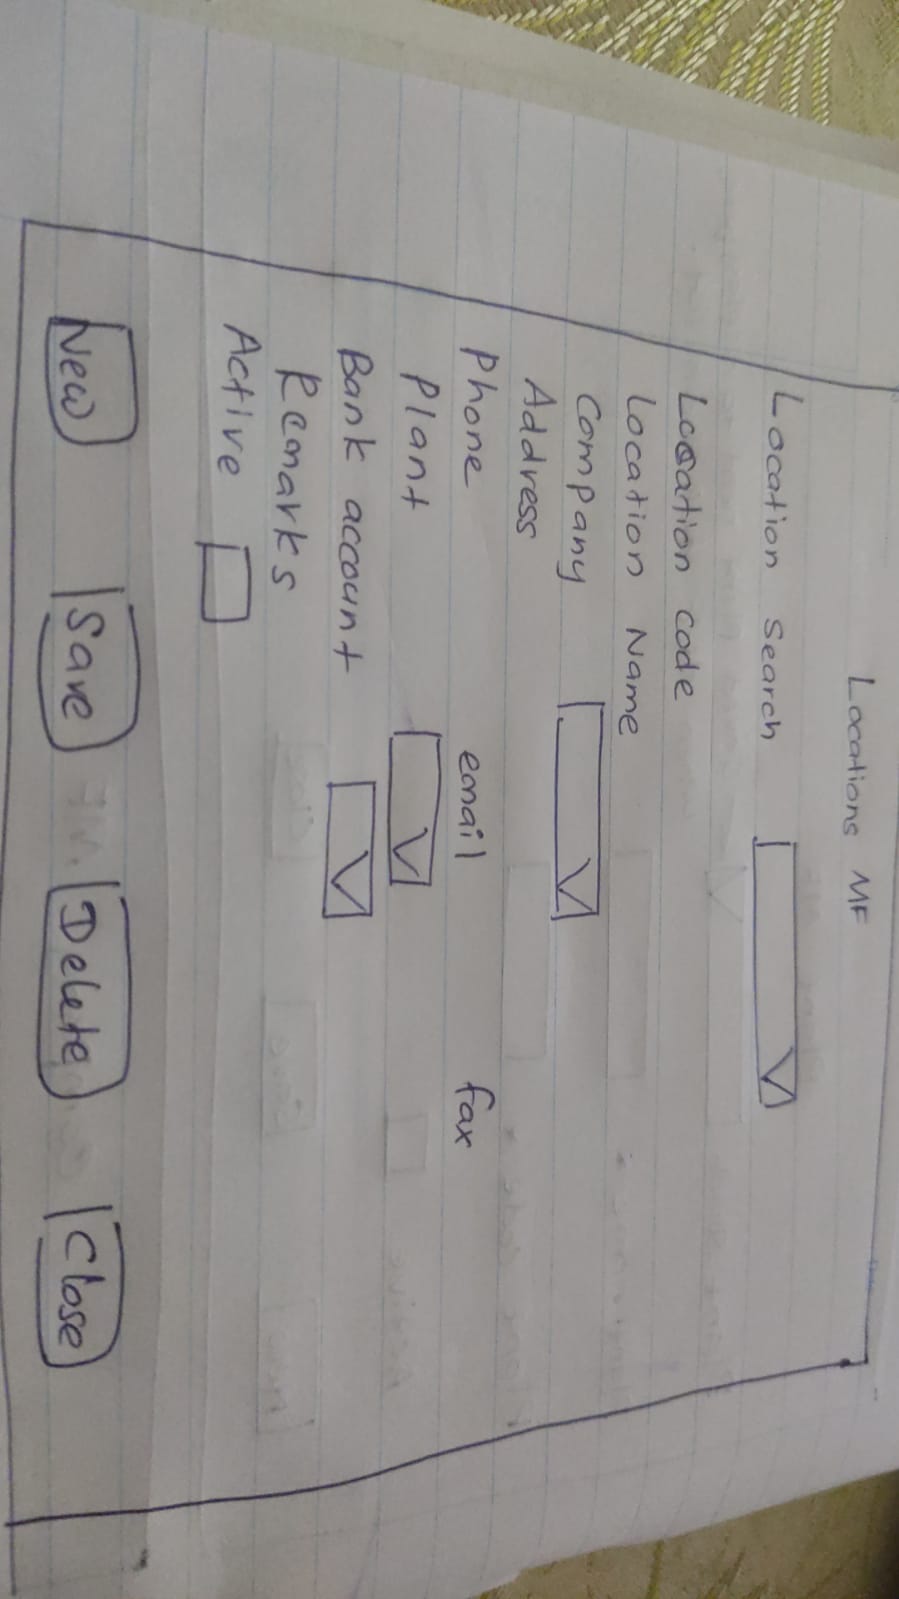 Locations MF
Location Search
Location code
Location Name
Company
Address
Phone email fax
Plant
Bank account
Remarks
Active
New Save Delete Close